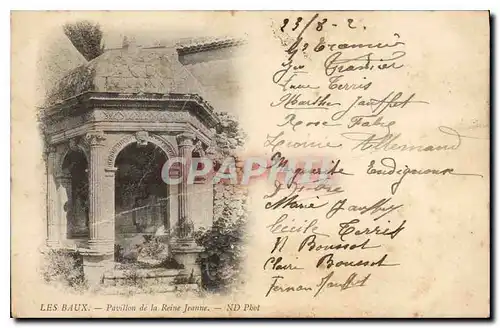 23/8-2.
Tramier
Tramier
Terris
Marthe Jauffret
Rose Fabre
Léonie Allemand
Marguerite Endignoux
Marie Jauffret
Cécile Terris
N Boussot
Claire Boussot
Fernan Jauffret
CPARAMA
LES BAUX. — Pavillon de la Reine Jeanne. — ND Phot